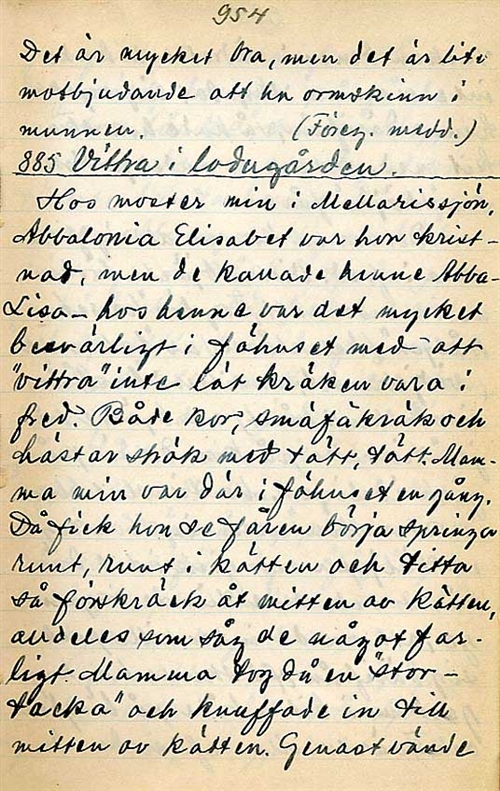 954
Det är mycket bra, men det är lite
motbjudande att ha ormskinn i
munnen. (Föreg. medd.)
885 Vittra i ladugården.
Hos moster min i Mellarissjön,
Abbalonia Elisabet var hon krist-
nad, men de kallade henne Abba-
Lisa – hos henne var det mycket
besvärligt i fähuset med att
"vittra" inte lät kräken vara i
fred. Både kor, småfäkräk och
hästar strök med tätt, tätt. Mam-
ma min var där i fähuset en gång.
Då fick hon se fåren börja springa
runt, runt i kätten och titta
så förskräck åt mitten av kätten,
andeles som såg de något far-
ligt. Mamma tog då en "stor-
tacka" och knuffade in till
mitten av kätten. Genast vände